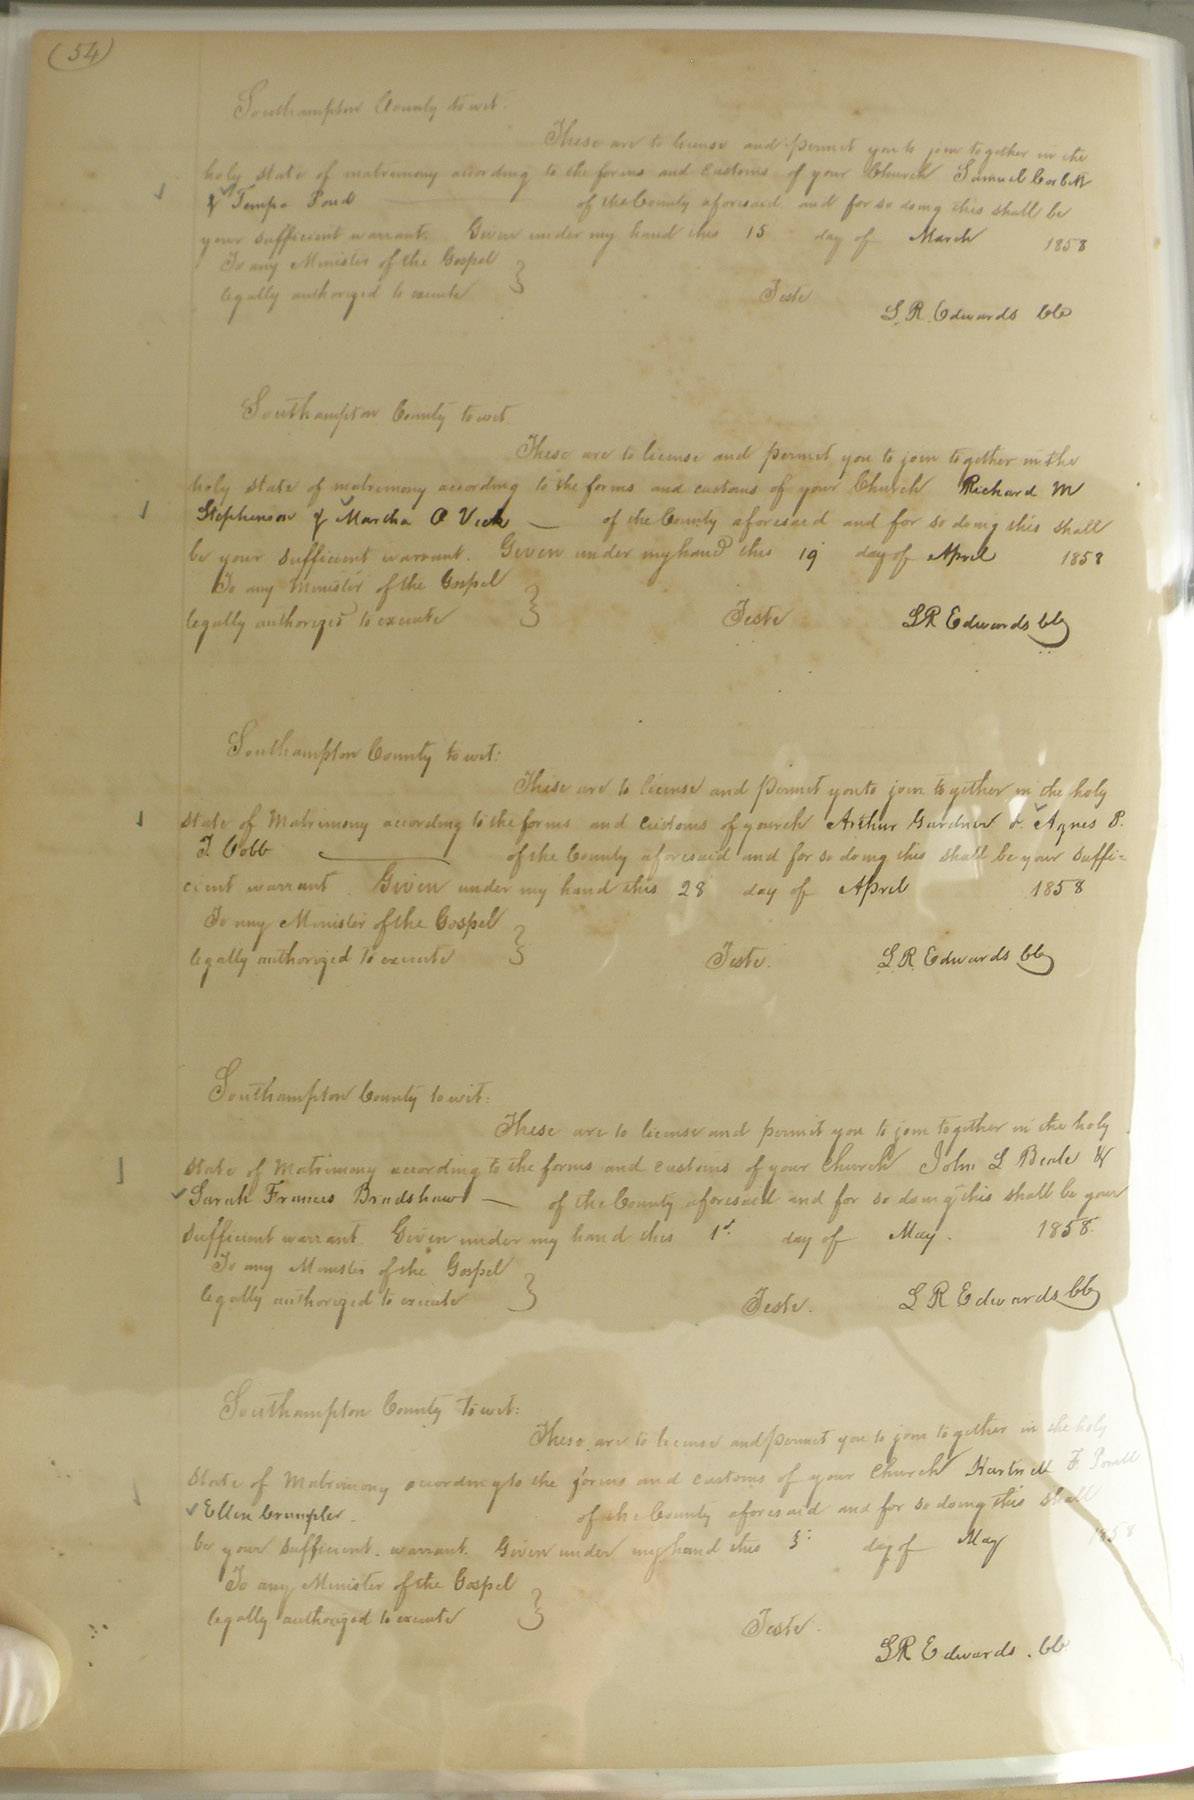 (54)
Southampton County to wit.
These are to license and permit you to join together in the
holy state of matrimony according to the forms and customs of your Church Samuel Corbitt
& Tempa Pond of the County aforesaid and for so doing this shall be
your sufficient warrant. Given under my hand this 15 day of March 1858
To any Minister of the Gospel
legally authorized to execute
Teste
L. R. Edwards CC
Southampton County to wit
These are to license and permit you to join together in the
holy state of matrimony according to the forms and customs of your Church Richard M
Stephenson & Martha A Vick of the County aforesaid and for so doing this shall
be your sufficient warrant. Given under my hand this 19 day of April 1858
To any Minister of the Gospel
legally authorized to execute
Teste
L R Edwards CC
Southampton County to wit:
These are to license and permit you to join together in the holy
state of Matrimony according to the forms and customs of yourch Arthur Gardner & Agnes P.
T. Cobb of the County aforesaid and for so doing this shall be your suffi=
cient warrant. Given under my hand this 28 day of April 1858
To any Minister of the Gospel
legally authorized to execute
Teste.
L. R. Edwards CC
Southampton County to wit:
These are to license and permit you to join together in the holy
state of Matrimony according to the forms and customs of your Church John L Beale &
Sarah Frances Bradshaw of the County aforesaid and for so doing this shall be your
sufficient warrant. Given under my hand this 1st day of May. 1858.
To any Minister of the Gospel
legally authorized to execute
Teste.
L R Edwards CC
Southampton County to wit:
These are to license and permit you to join together in the holy
state of Matrimony according to the forms and customs of your Church Hartwell F Powell
Ellen Crumpler. of the County aforesaid and for so doing this shall
be your sufficient warrant. Given under my hand this day of May 1858
To any Minister of the Gospel
legally authorized to execute
Teste.
L R Edwards. CC